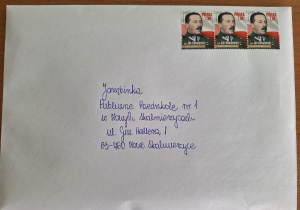 POLSKA
POLSKA
POLSKA
Jarzębinka
Publiczne Przedszkole nr 1
w Nowych Skalmierzycach
ul. Gen. Hallera 1
63-460 Nowe Skalmierzyce